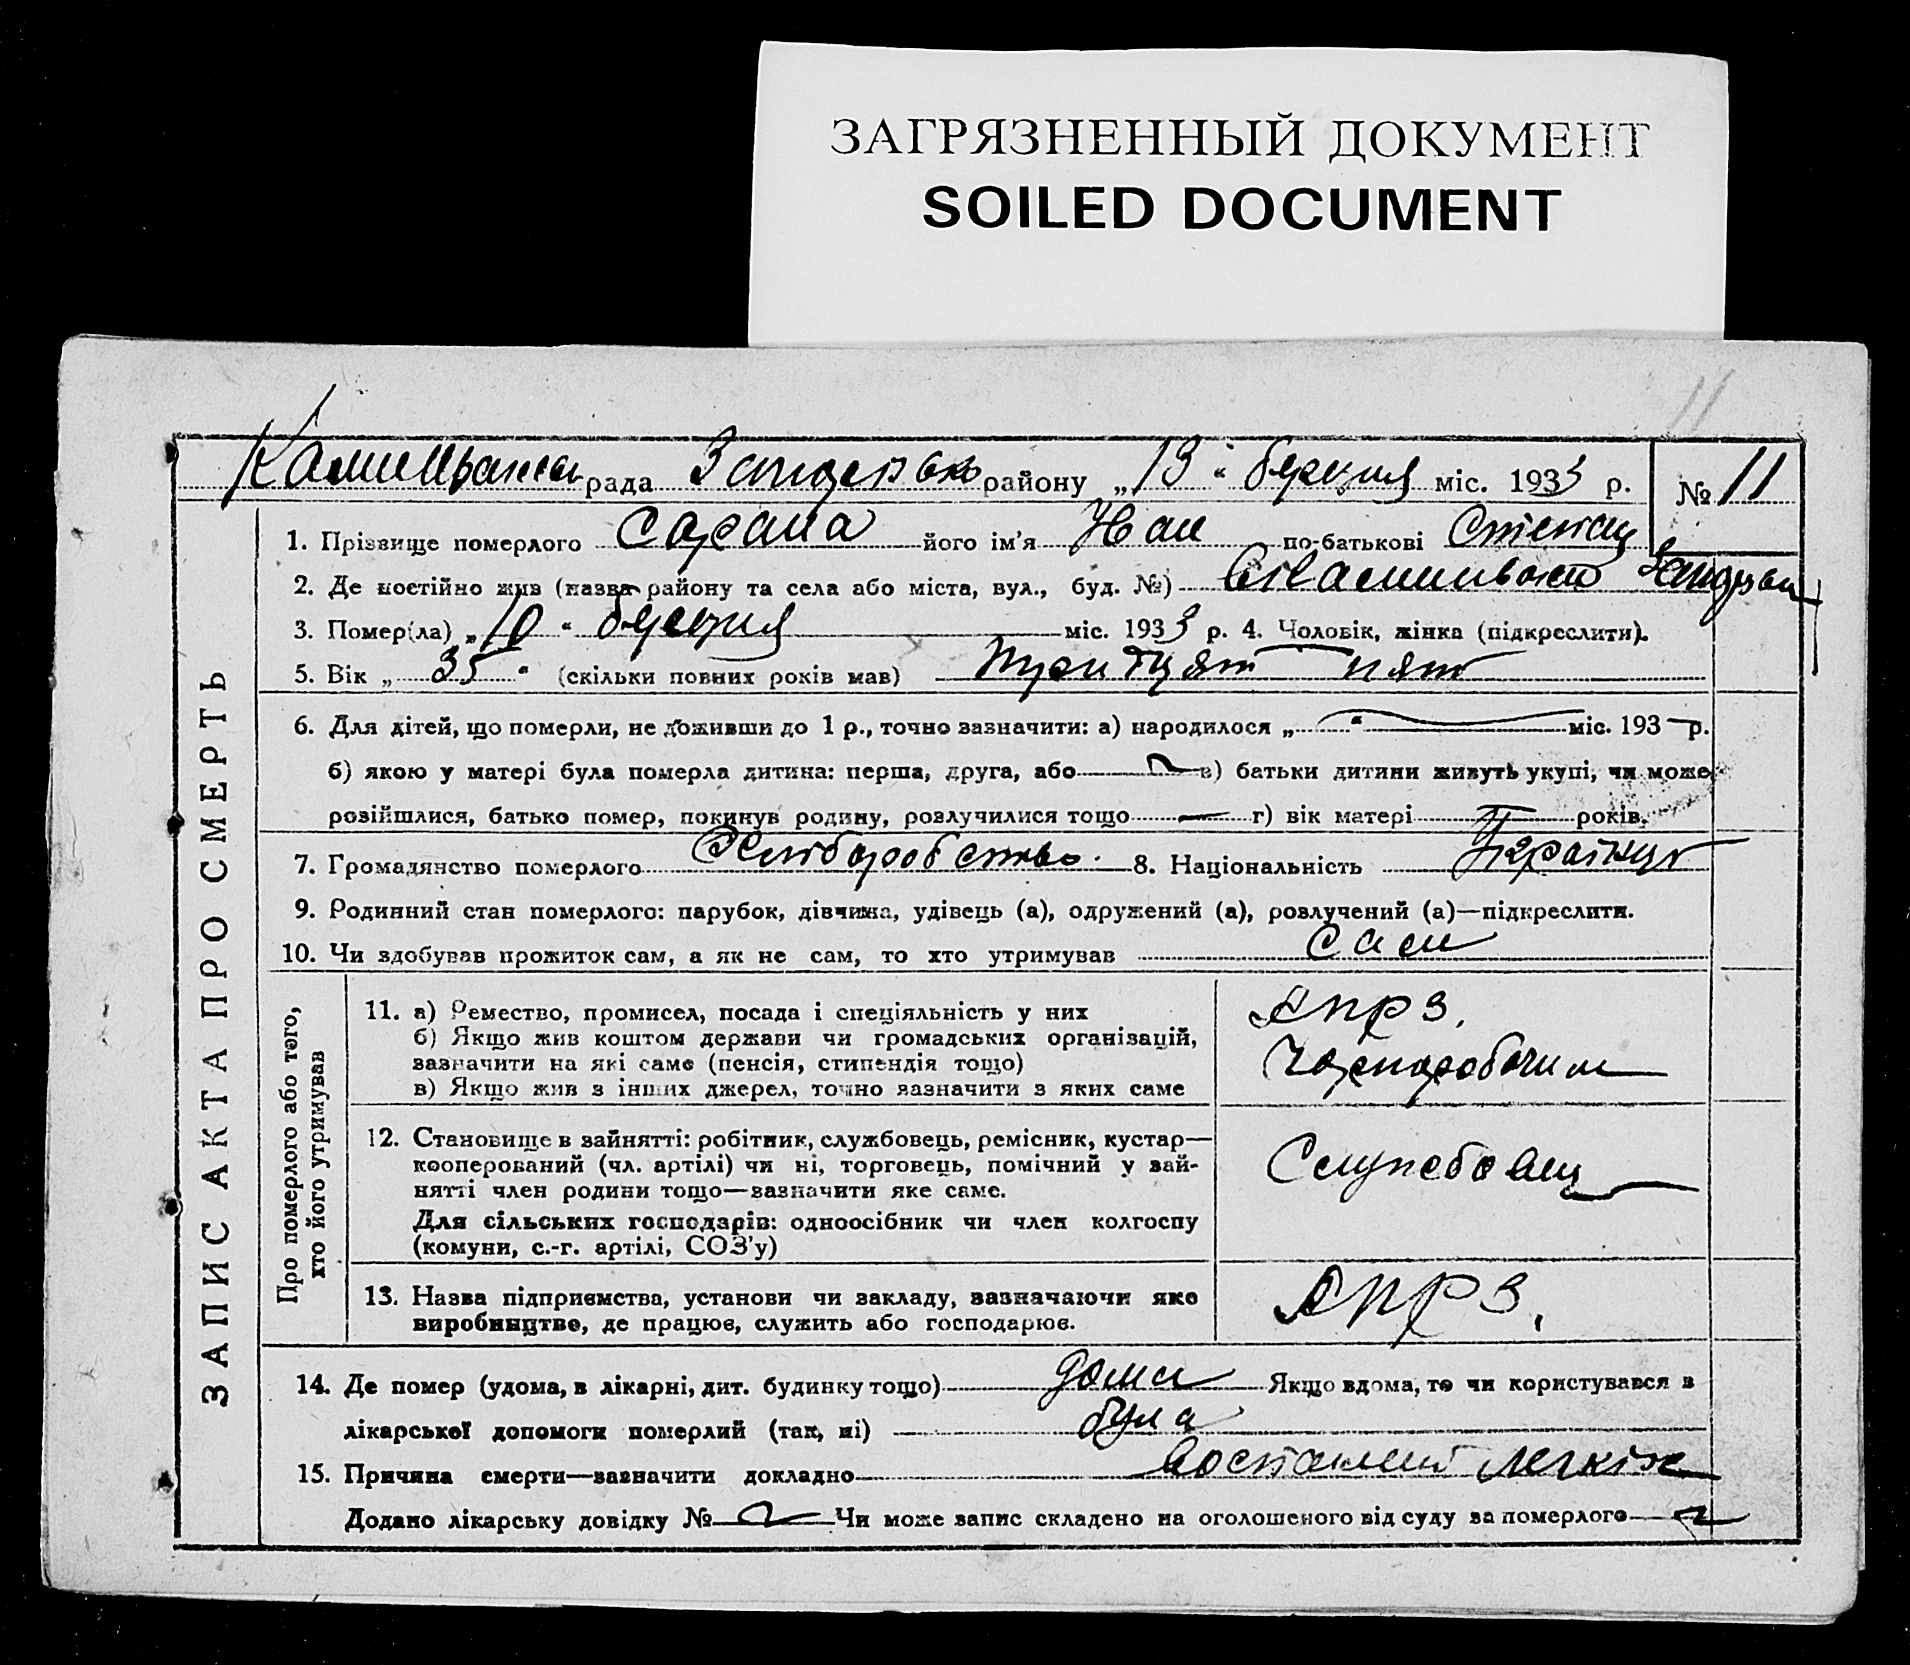 ЗАГРЯЗНЕННЫЙ ДОКУМЕНТ
SOILED DOCUMENT
11
рада району „13“ березня міс. 1933 р. № 11
ЗАПИС АКТА ПРО СМЕРТЬ
1. Прізвище померлого його ім'я Иван по-батькові Степан
2. Де постійно жив (назва району та села або міста, вул., буд. №)
3. Помер(ла) „10“ березня міс. 1933 р. 4. Чоловік, жінка (підкреслити).
5. Вік „35“ (скільки повних років мав) тритцят пят
6. Для дітей, що померли, не доживши до 1 р., точно зазначити: а) народилося „ “ міс. 193 р.
б) якою у матері була померла дитина: перша, друга, або в) батьки дитини живуть укупі, чи може
розійшлися, батько помер, покинув родину, розлучилися тощо г) вік матері років.
7. Громадянство померлого 8. Національність
9. Родинний стан померлого: парубок, дівчина, удівець (а), одружений (а), розлучений (а)—підкреслити.
10. Чи здобував прожиток сам, а як не сам, то хто утримував сам
Про померлого або того,
хто його утримував
11. а) Ремество, промисел, посада і спеціяльність у них
б) Якщо жив коштом держави чи громадських організацій,
зазначити на які саме (пенсія, стипендія тощо)
в) Якщо жив з інших джерел, точно зазначити з яких саме
Чорноробочим
12. Становище в зайнятті: робітник, службовець, ремісник, кустар—
кооперований (чл. артілі) чи ні, торговець, помічний у зай-
нятті член родини тощо—зазначити яке саме.
Для сільських господарів: одноосібник чи член колгоспу
(комуни, с.-г. артілі, СОЗ'у)
Службовец
13. Назва підприємства, установи чи закладу, зазначаючи яке
виробництво, де працює, служить або господарює.
14. Де помер (удома, в лікарні, дит. будинку тощо) дома Якщо вдома, то чи користувався в
лікарської допомоги померлий (так, ні) була
15. Причина смерти—зазначити докладно легкіх
Додано лікарську довідку № Чи може запис складено на оголошеного від суду за померлого